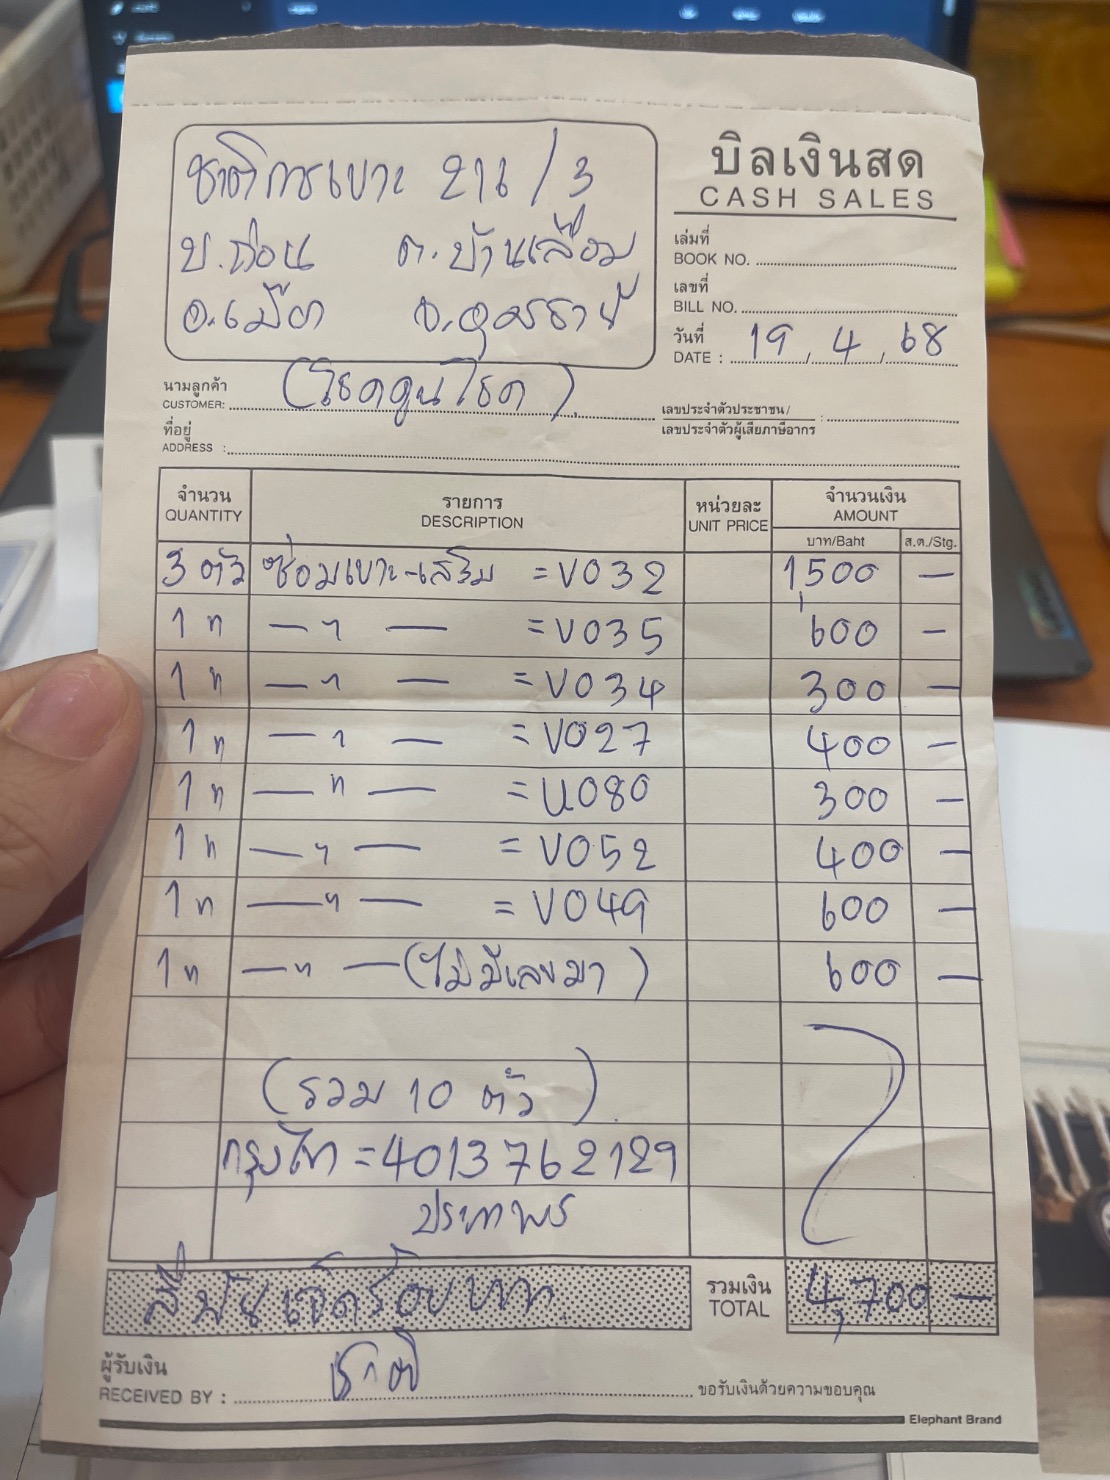 ชาติการเบาะ 216/3
บ.ถ่อน ต.บ้านเลื่อม
อ.เมือง จ.อุดรธานี
บิลเงินสด
CASH SALES
เล่มที่
BOOK NO.
เลขที่
BILL NO.
วันที่
DATE : 19 / 4 / 68
นามลูกค้า
CUSTOMER: (โชคคูนโชค)
เลขประจำตัวประชาชน/
เลขประจำตัวผู้เสียภาษีอากร :
ที่อยู่
ADDRESS :
จำนวน รายการ หน่วยละ จำนวนเงิน
QUANTITY DESCRIPTION UNIT PRICE AMOUNT
บาท/Baht ส.ต./Stg.
3 ตัว ซ่อมเบาะ-เสริม = V032 1,500 —
1 " — " — = V035 600 —
1 " — " — = V034 300 —
1 " — " — = V027 400 —
1 " — " — = U080 300 —
1 " — " — = V052 400 —
1 " — " — = V049 600 —
1 " — " — (ไม่มีเลขมา) 600 —
(รวม 10 ตัว)
กรุงไทย = 4013762129
ประภาพร
สี่พันเจ็ดร้อยบาท รวมเงิน
TOTAL 4,700 —
ผู้รับเงิน
RECEIVED BY : ชาติ
ขอรับเงินด้วยความขอบคุณ
Elephant Brand